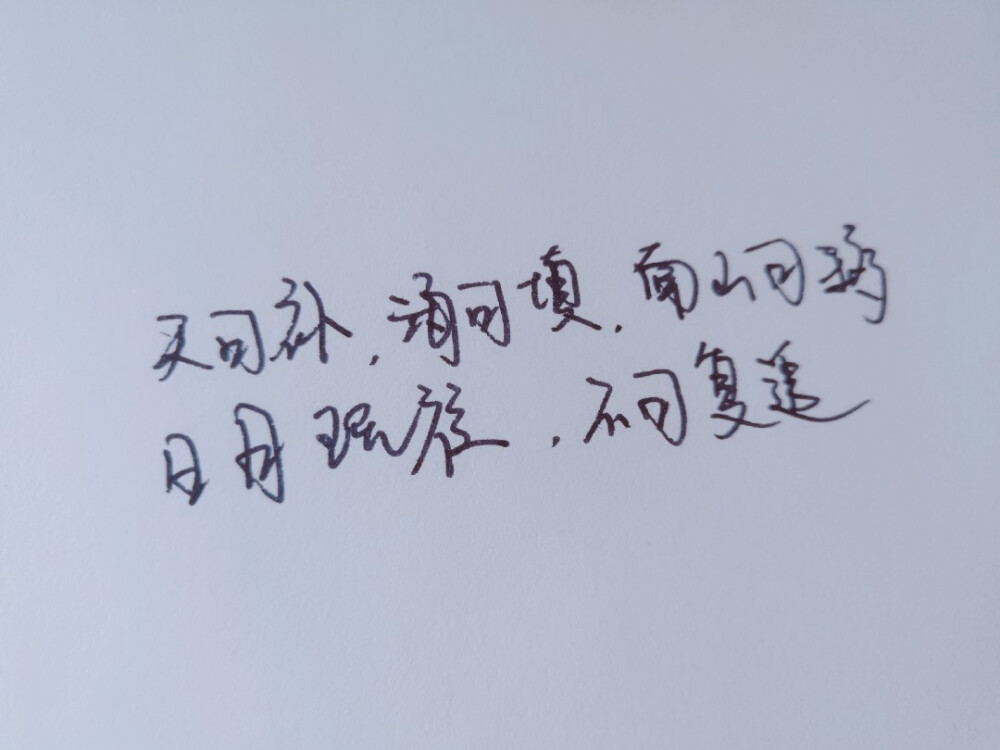 天可补，海可填，南山可移
日月既往，不可复追